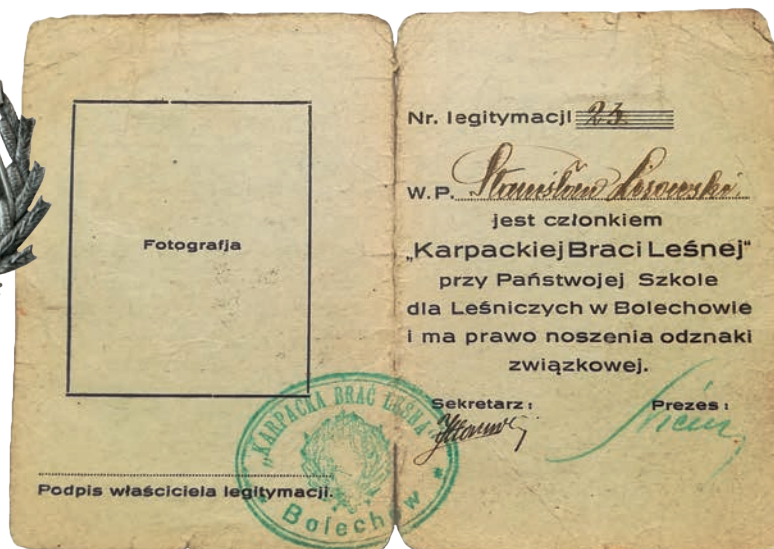 Fotografja
Podpis właściciela legitymacji.
"KARPACKA BRAĆ LEŚNA"
* Bolechów *
Nr. legitymacji 23
W.P. Stanisław Lisowski
jest członkiem
„Karpackiej Braci Leśnej"
przy Państwojej Szkole
dla Leśniczych w Bolechowie
i ma prawo noszenia odznaki
związkowej.
Sekretarz: Prezes: